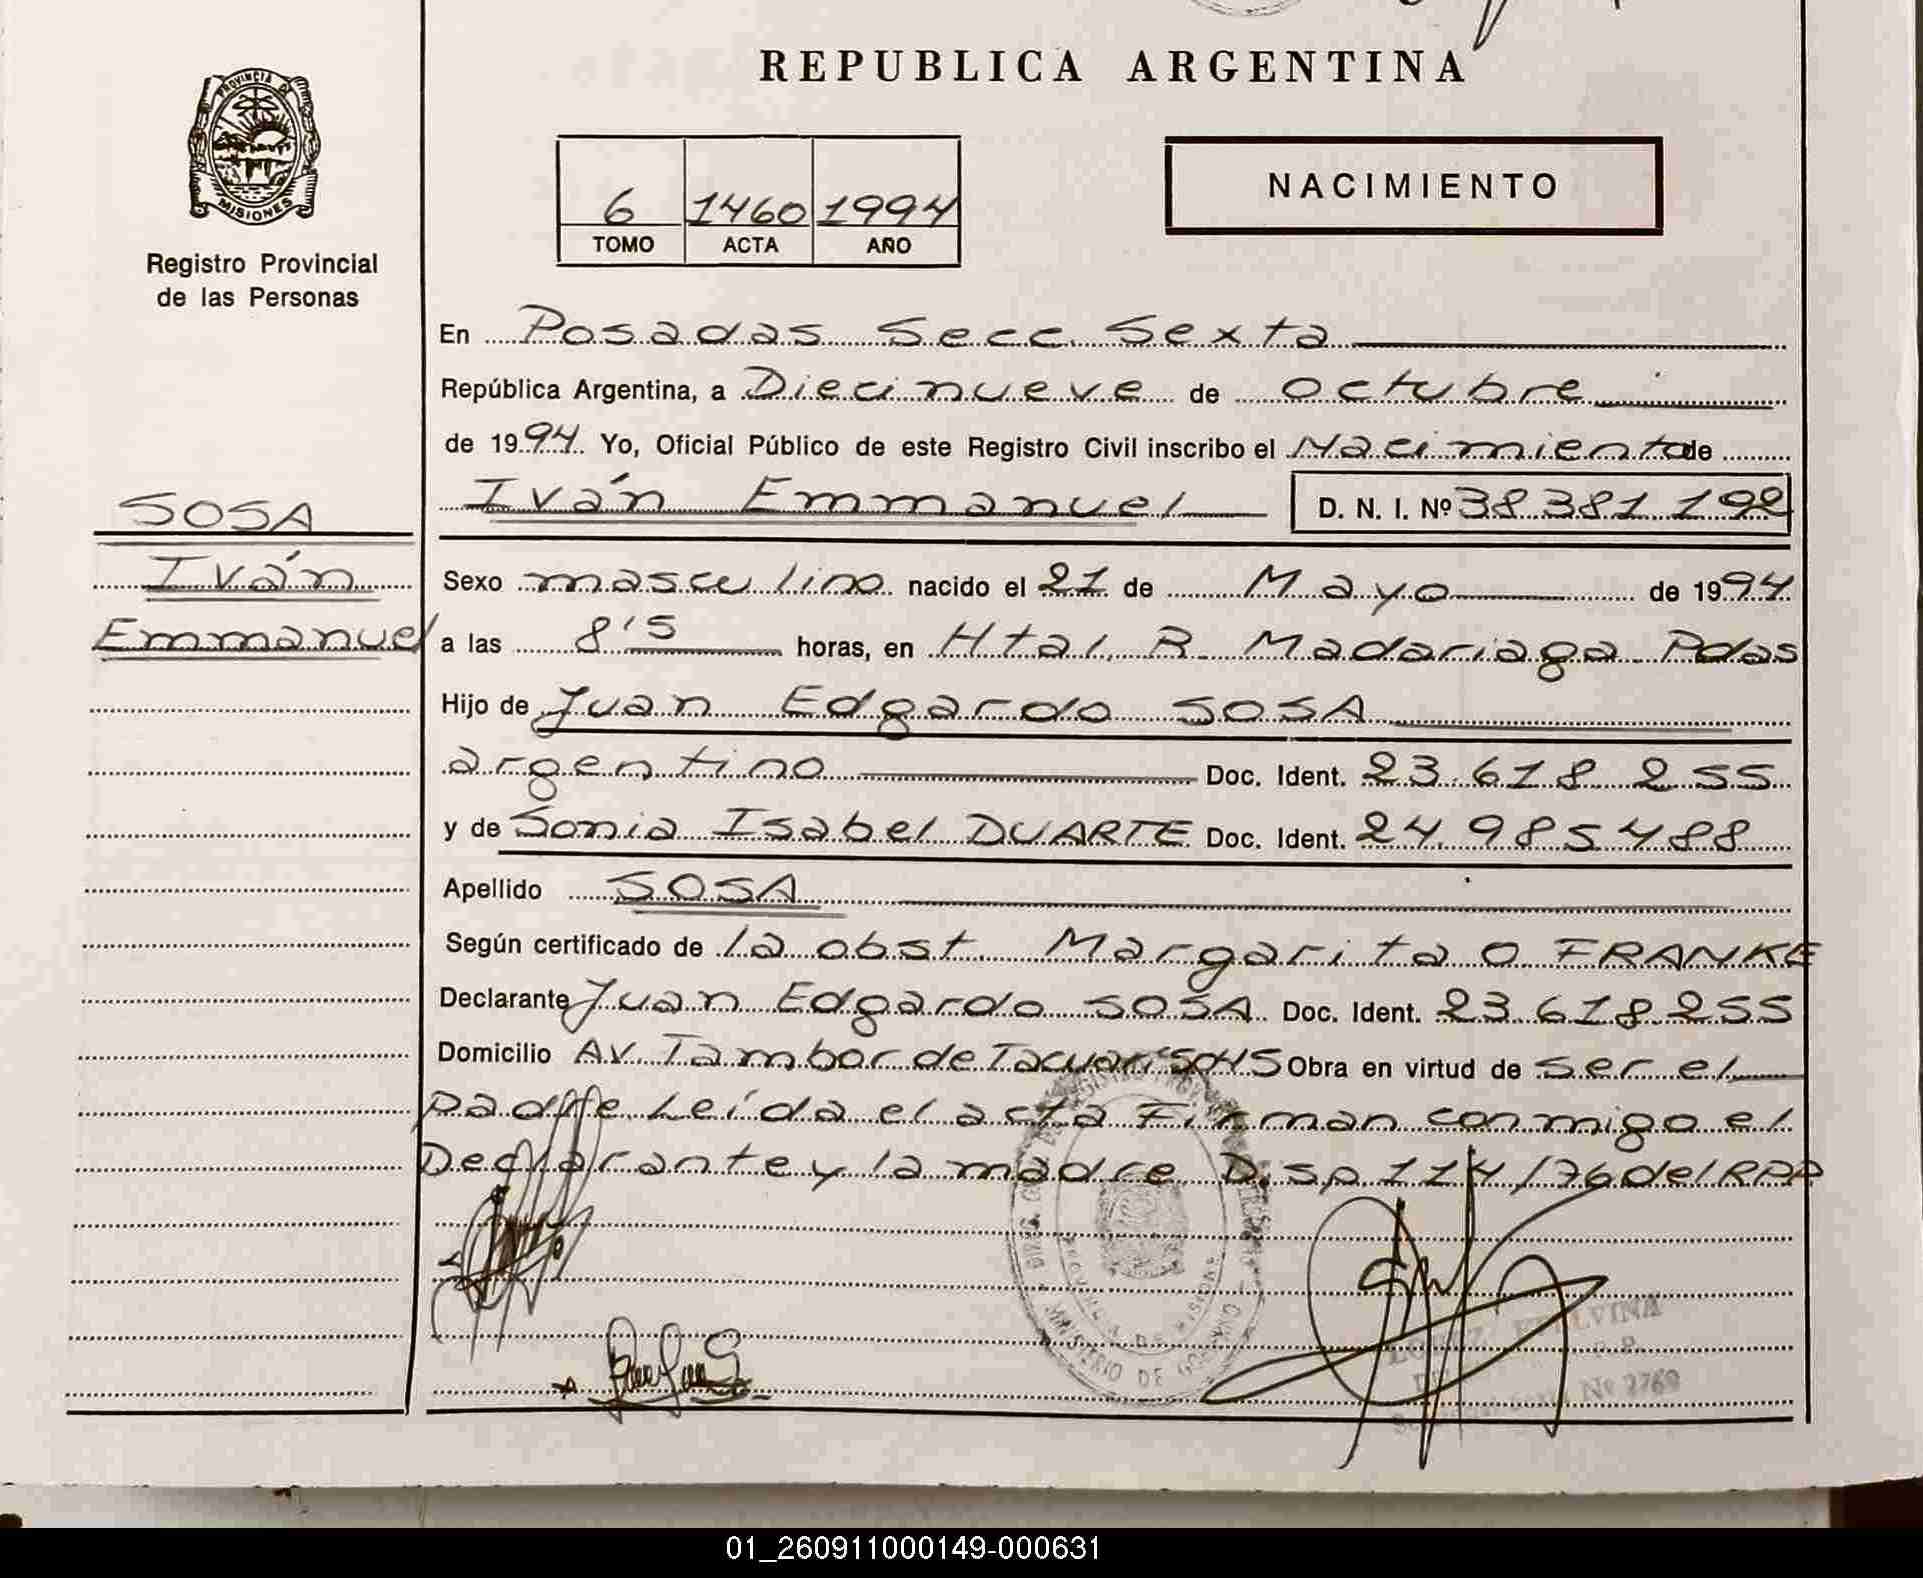 REPUBLICA ARGENTINA
PROVINCIA DE
MISIONES
Registro Provincial
de las Personas
6 1460 1994
TOMO ACTA AÑO
NACIMIENTO
SOSA
Iván
Emmanuel
En Posadas Secc. Sexta
República Argentina, a Diecinueve de octubre
de 1994. Yo, Oficial Público de este Registro Civil inscribo el Nacimiento de
Iván Emmanuel D. N. I. Nº 38.381.192
Sexo masculino nacido el 21 de Mayo de 1994
a las 8'5 horas, en Htal. R. Madariaga Pdas
Hijo de Juan Edgardo SOSA
argentino Doc. Ident. 23.618.255
y de Sonia Isabel DUARTE Doc. Ident. 24.985488
Apellido SOSA
Según certificado de la obst. Margarita O FRANKE
Declarante Juan Edgardo SOSA Doc. Ident. 23.618.255
Domicilio Av. Tambor de Tacuarí Obra en virtud de ser el
padre Leída el acta Firman conmigo el
Declarante y la madre Disp. 114/76 del RPP
MINISTERIO DE
PROVINCIA DE MISIONES
Nº 2769
01_260911000149-000631